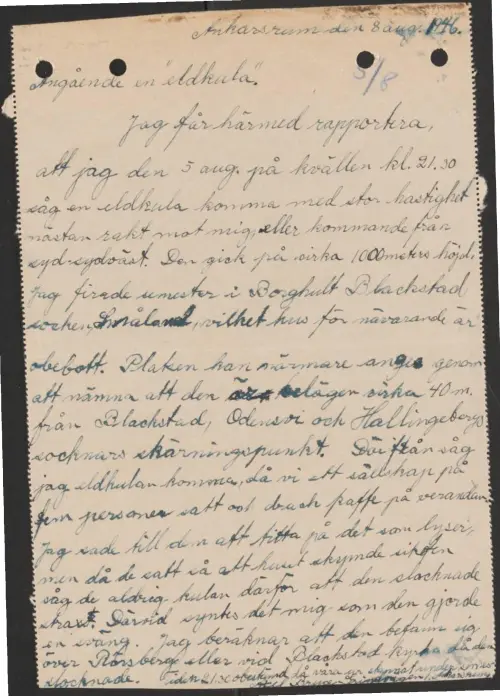 Ankarsrum den 8 aug. 1946.
5/8
Angående en "eldkula".
Jag får härmed rapportera,
att jag den 5 aug. på kvällen kl. 21.30
såg en eldkula komma med stor hastighet
nästan rakt mot mig, eller kommande från
syd-sydväst. Den gick på cirka 1000 meters höjd.
Jag firade semester i Borghult Blackstad
socken, Småland, vilket hus för närvarande är
obebott. Platsen kan närmare anges genom
att nämna att den är belägen cirka 40 m.
från Blackstad, Odensvi och Hallingebergs
socknars skärningspunkt. Därifrån såg
jag eldkulan komma, då vi ett sällskap på
fem personer satt och drack kaffe på verandan.
Jag sade till dem att titta på det som lyser,
men då de satt så att huset skymde sikten
såg de aldrig kulan därför att den slocknade
strax. Därvid syntes det mig som den gjorde
en sväng. Jag beräknar att den befann sig
över Rörsberg eller vid Blackstad kyrka då den
slocknade. Tiden 21.30